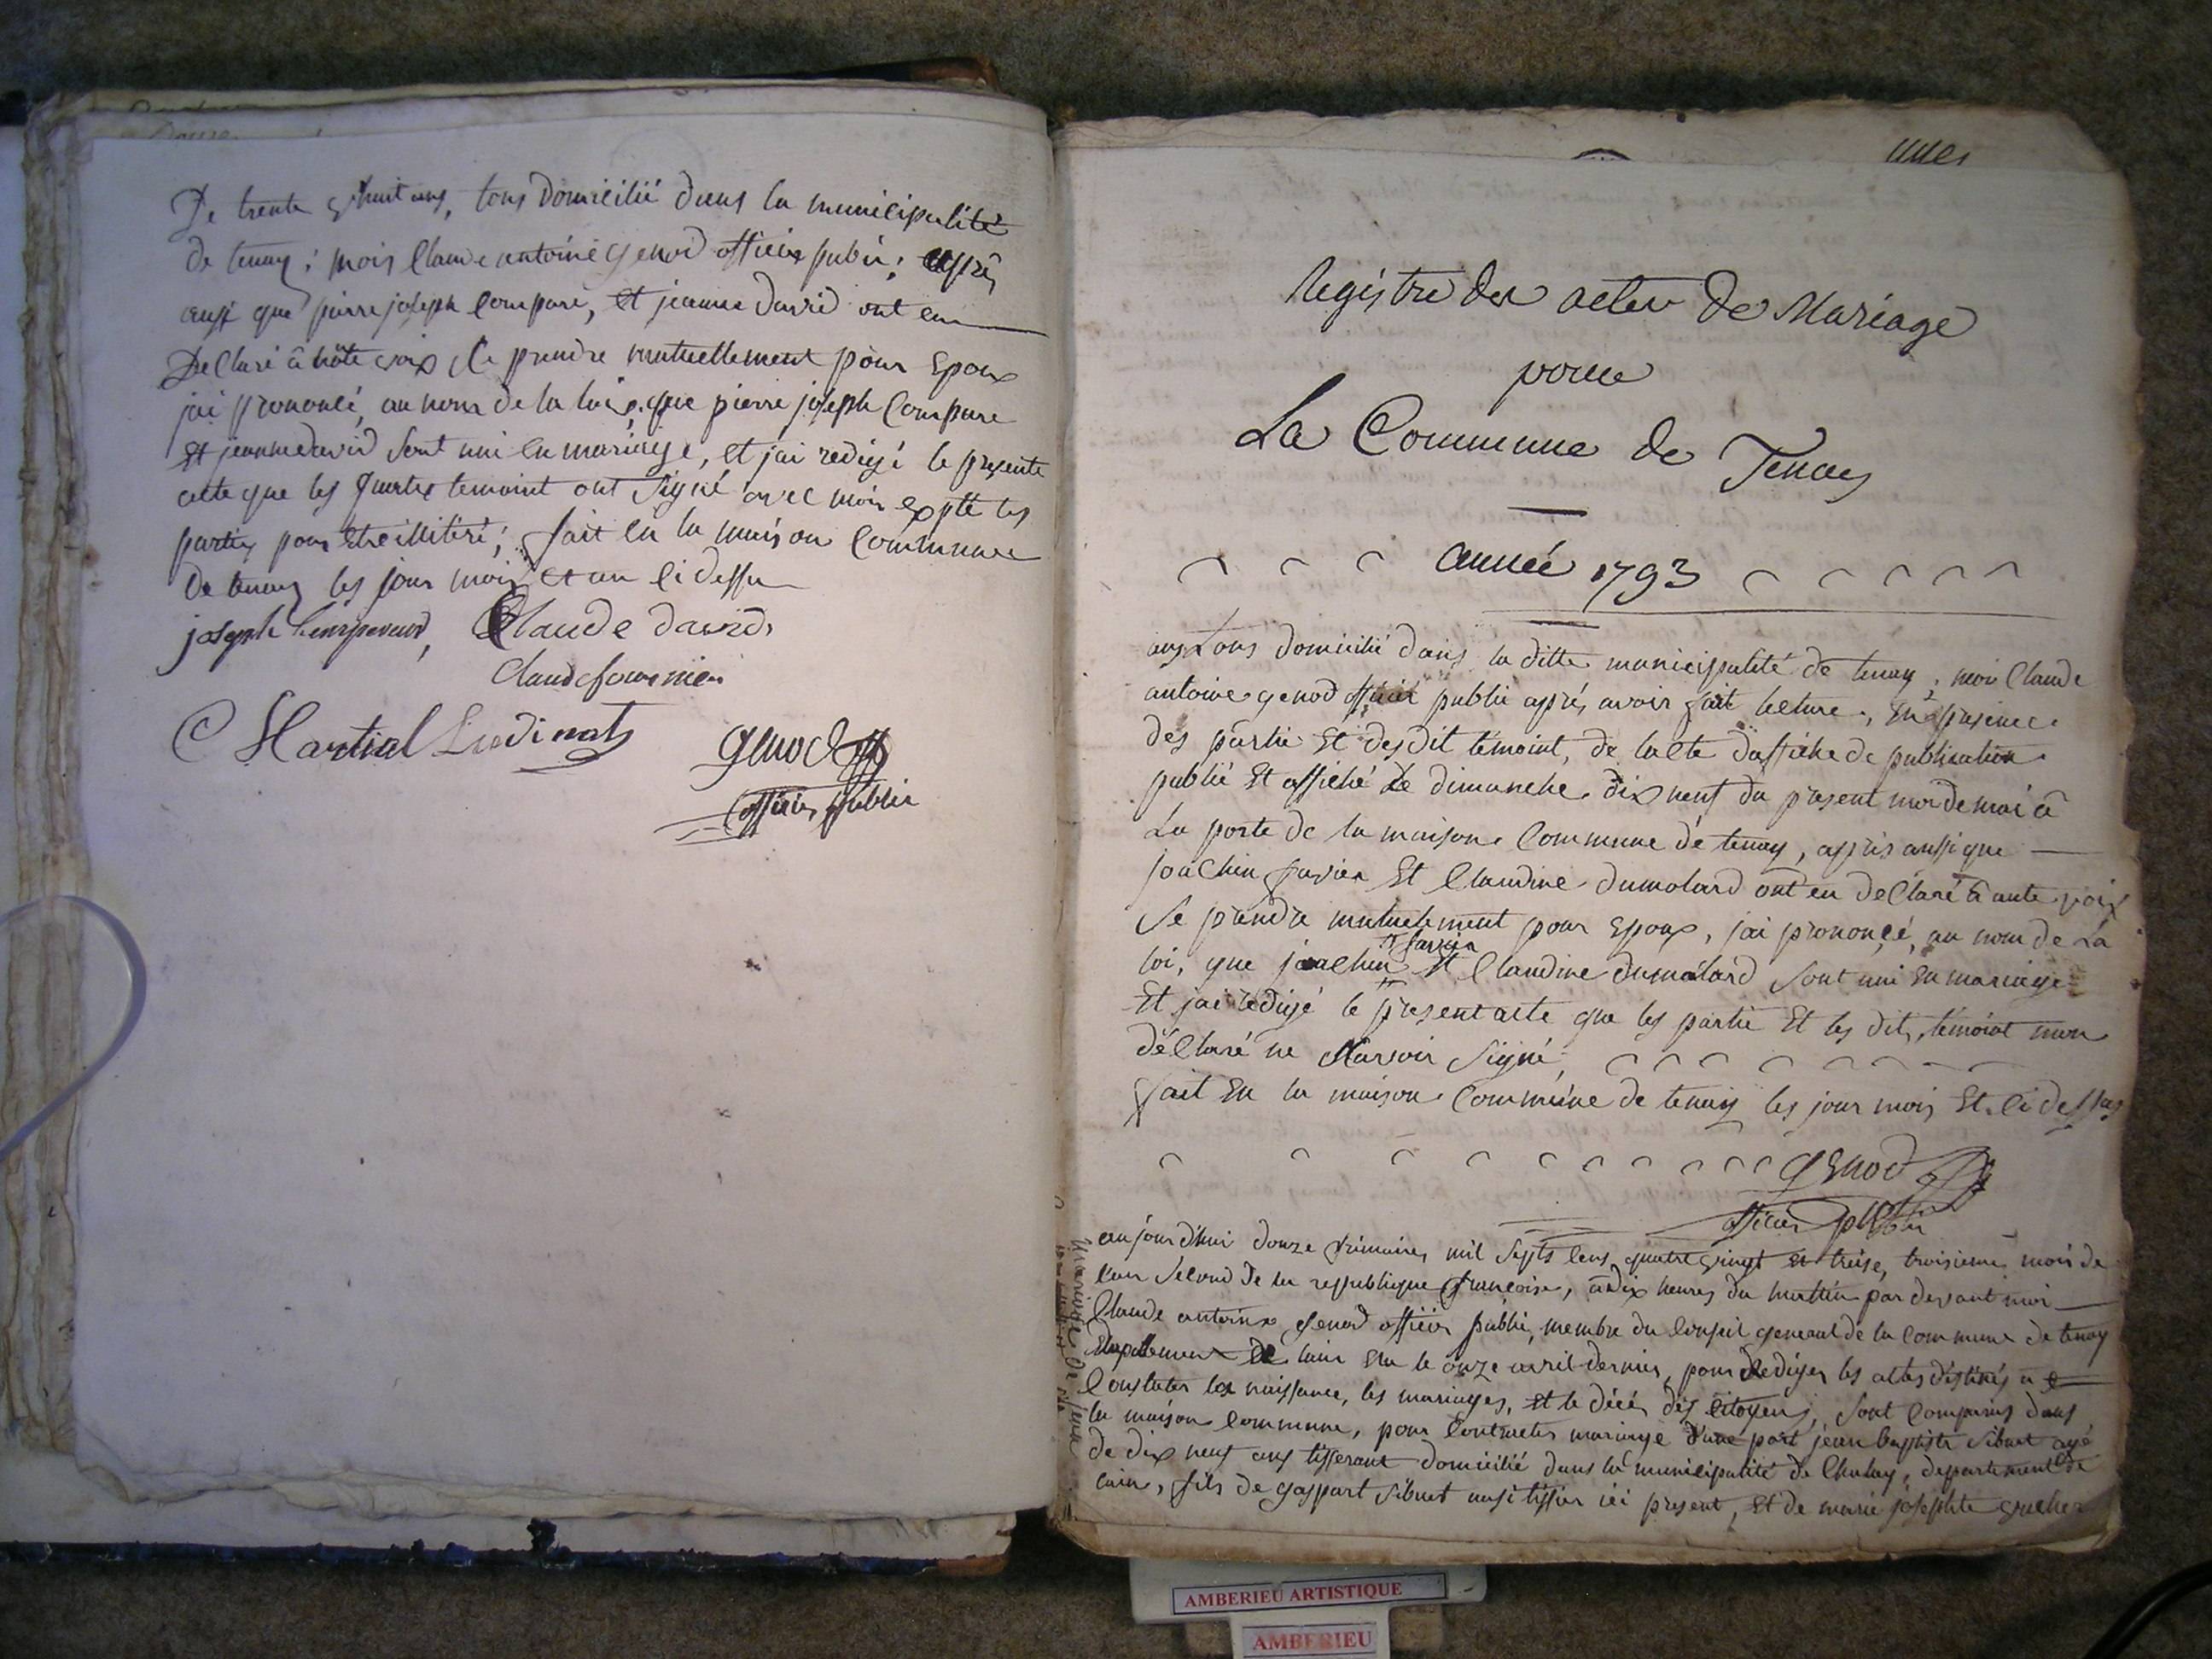 De trente & huit ans, tous domicilié dans la municipalité
de tenay; mois Claude antoine genod officier public; apprés
ausi que pierre joseph Compare, et jeanne david ont eu
Declaré à hôte voix se prendre mutuellement pour Epoux
jai prononcé, au nom de la loi, que pierre joseph Compare
Et jeanne david sont uni en mariage, et jai redigé le presente
acte que les quatres temoint ont signé avec moi expté les
parties pour etre illitéré; fait en la maison Commune
de tenay les jour mois et an ci dessu
joseph Claude david
Claude fournier
C Martial Ludinats
genod
officier public
Registre des actes de Mariage
pour
La Commune de Tenay
année 1793
ans tous domicilié dans la ditte municipalité de tenay; moi Claude
antoine genod officier public aprés avoir fait lecture, En presence
des partie Et desdit témoint, de lacte daffiche de publication
publié Et affiché Le dimanche dix neuf du present mois de mai à
La porte de la maison Commune de tenay, appris aussi que
joachin favier Et Claudine dumolard ont eu declaré à aute voix
se prendre mutuelement pour Epoux, jai prononçé, au nom de La
loi, que joachin favier Et Claudine dumolard sont uni En mariage
Et jai redigé le present acte que les partie Et les dit, témoint mon
déClaré ne savoir signé
fait En la maison Commune de tenay les jour mois Et ci dessus
genod
officier public
aujourd'hui douze frimaires mil septs cens quatre vingt et treise, troisieme mois de
l'an second de la republique françoise, à dix heures du mattin par devant moi
Claude antoine genod officier public, membre du Conseil general de la Commune de tenay
departement de lain Elu le onze avril dernier, pour Rediger les actes distinés à
Constater les naissance, les mariages, et le décés des citoyens, sont Comparus dans
la maison Commune, pour Contracter mariage d'une part jean baptiste sibuet agé
de dix neuf ans tisserant domicilié dans la municipalité de Chaley, departement de
lain, fils de gaspart sibuet ausi tissier ici present, Et de marie josephte
mariage de jean
AMBERIEU ARTISTIQUE
AMBERIEU